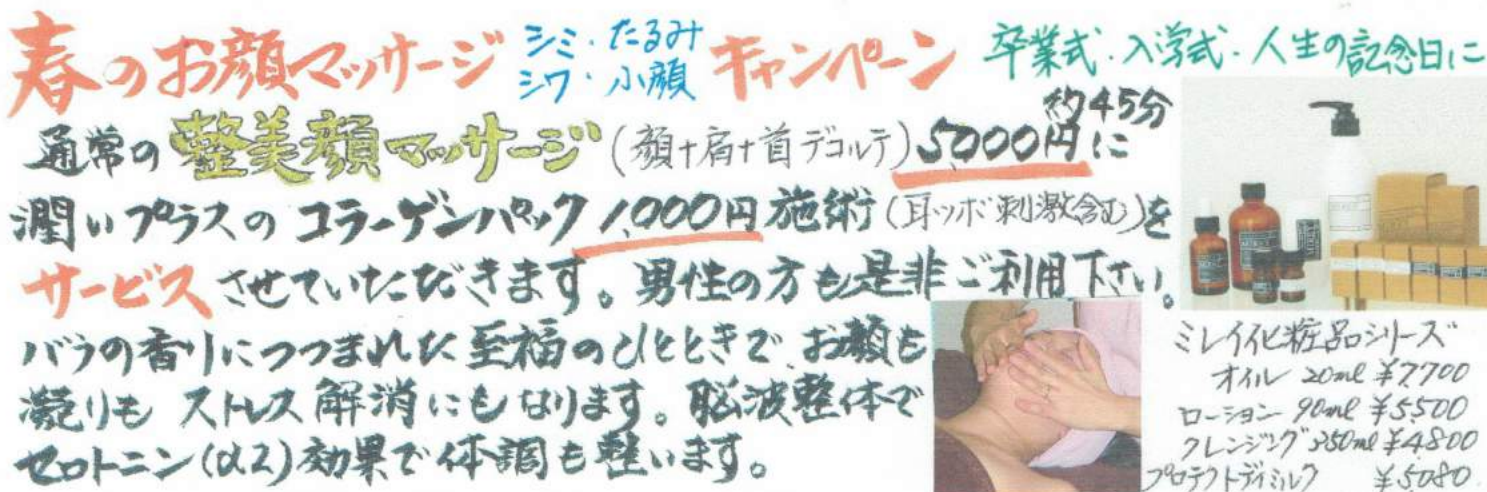 春のお顔マッサージ シミ・たるみ シワ・小顔 キャンペーン 卒業式・入学式・人生の記念日に
約45分
通常の整美顔マッサージ(顔+肩+首デコルテ)5,000円に
潤いプラスのコラーゲンパック1,000円施術(耳ツボ刺激含む)を
サービスさせていただきます。男性の方も是非ご利用下さい。
バラの香りにつつまれた至福のひとときで、お顔も
凝りも ストレス解消にもなります。脳波整体で
セロトニン(α2)効果で体調も整います。
ミレイ化粧品シリーズ
オイル 20ml ¥7,700
ローション 90ml ¥5500
クレンジング 350ml ¥4,800
プロテクトディミルク ¥5080